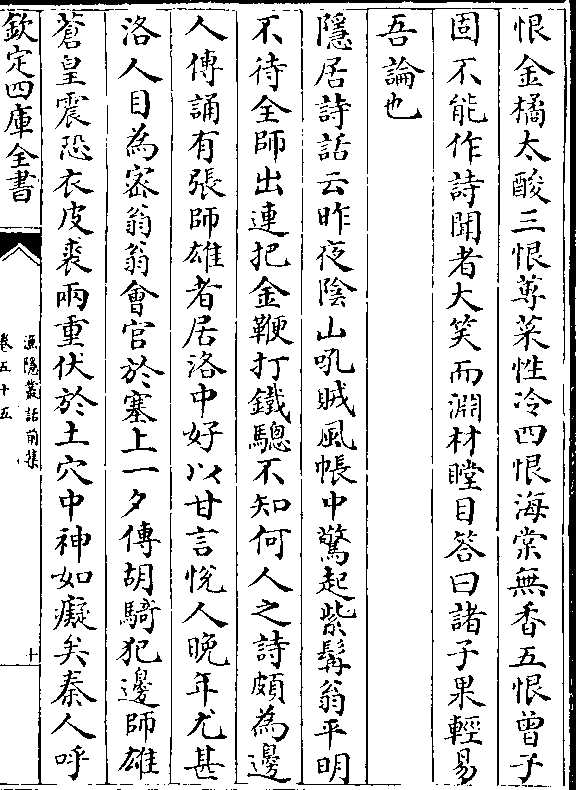 恨金橘太酸三恨蓴菜性冷四恨海棠無香五恨曾子
固不能作詩聞者大笑而淵材瞠目答曰諸子果輕易
吾論也
隱居詩話云昨夜陰山吼賊風帳中驚起紫髯翁平明
不待全師出連把金鞭打鐵驄不知何人之詩頗為邊
人傳誦有張師雄者居洛中好以甘言悅人晚年尤甚
洛人目為宻翁翁會官於塞上一夕傳胡騎犯邊師雄
蒼皇震恐衣皮裘兩重伏於土穴中神如癡矣秦人呼
欽定四庫全書
漁隱叢話前集
卷五十五
十